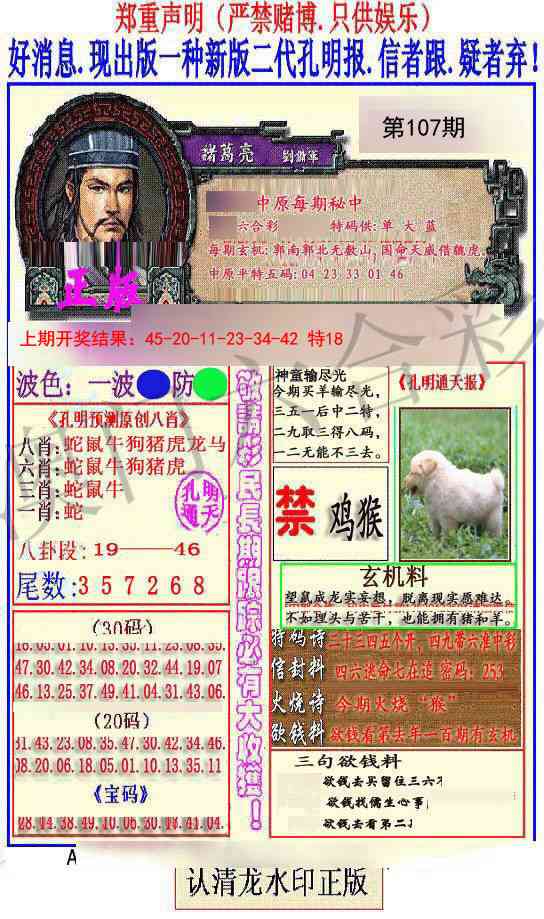 郑重声明（严禁赌博.只供娱乐）
好消息.现出版一种新版二代孔明报.信者跟.疑者弃!
第107期
諸葛亮 劉備軍
中原每期秘中
六合彩 特码供: 单 大 蓝
每期玄机: 郭南郭北无数山, 国命天威借魏虎.
中原平特五码: 04 23 33 01 46
正版
上期开奖结果: 45-20-11-23-34-42 特18
波色: 一波 防
《孔明预测原创八肖》
八肖: 蛇鼠牛狗猪虎龙马
六肖: 蛇鼠牛狗猪虎
三肖: 蛇鼠牛
一肖: 蛇
孔明通天
八卦段: 19——46
尾数: 357268
(30码)
18.05.01.10.13.35.11.23.08.33.
47.30.42.34.08.20.32.44.19.07
46.13.25.37.49.41.04.31.43.06.
(20码)
31.43.23.08.35.47.30.42.34.46.
08.20.06.18.05.01.10.13.35.11
《宝码》
28.14.38.49.10.06.30.18.41.04.
敬請彩民長期跟踪必有大收獲！
神童输尽光
今期买羊输尽光,
三五一后中二特,
二九取三得八码,
一二无能不三去。
《孔明通天报》
禁 鸡猴
玄机料
望鼠成龙实妄想, 脱离现实愿难达。
不如埋头与苦干, 也能拥有猪和羊。
特码诗 三十三四五个开, 四九带六准中彩
信封料 四六逃命七在追 密码: 253
火烧诗 今期火烧“猴”
欲钱料 欲钱看第去年一百期有玄机
三句欲钱料
欲钱去买留住三六
欲钱找儒生心事
欲钱去看第二
A
认清龙水印正版